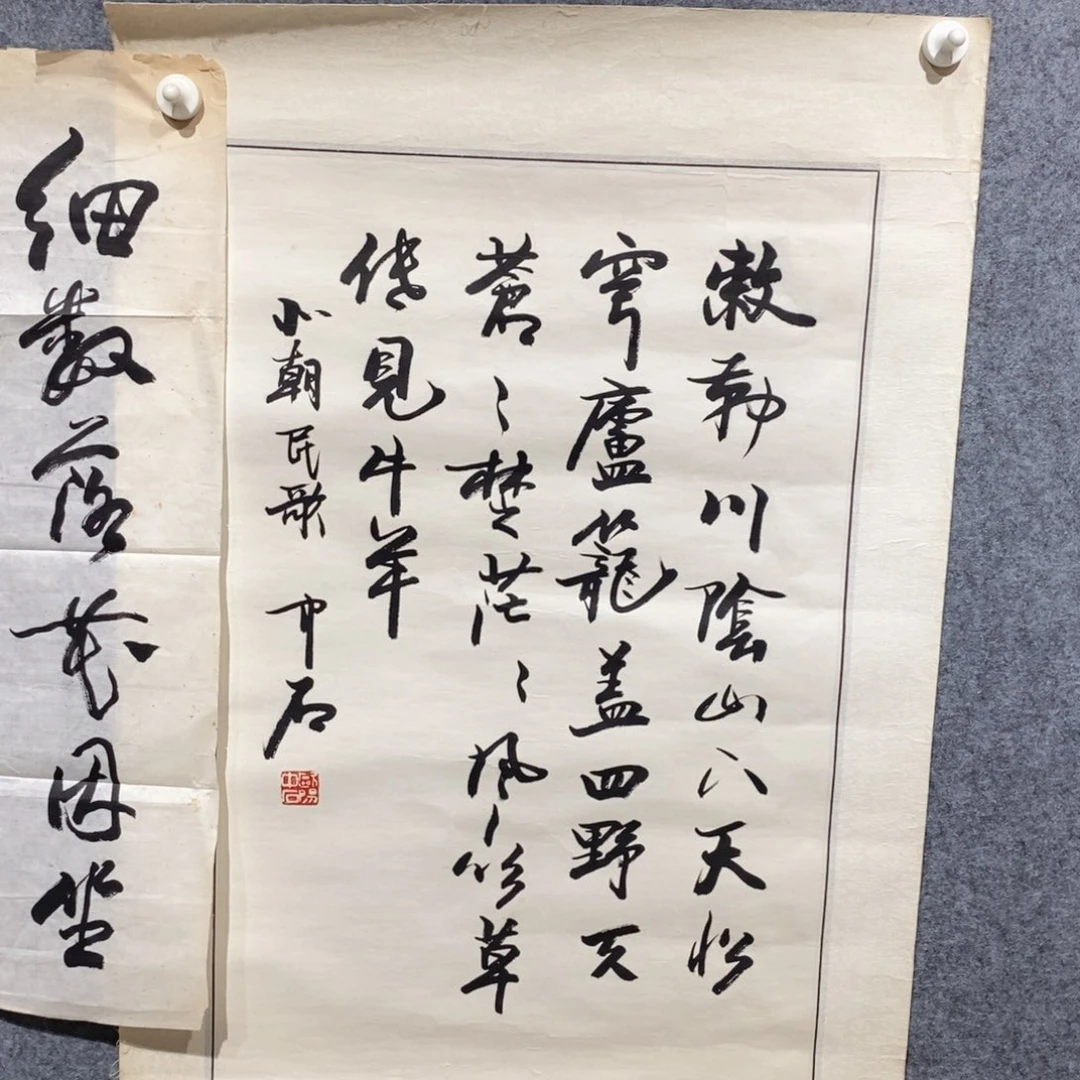 敕勒川陰山下天似
穹廬籠盖四野天
蒼〻埜茫〻風吹草
低見牛羊
北朝民歌 中石
歐陽中石
細數落花因坐